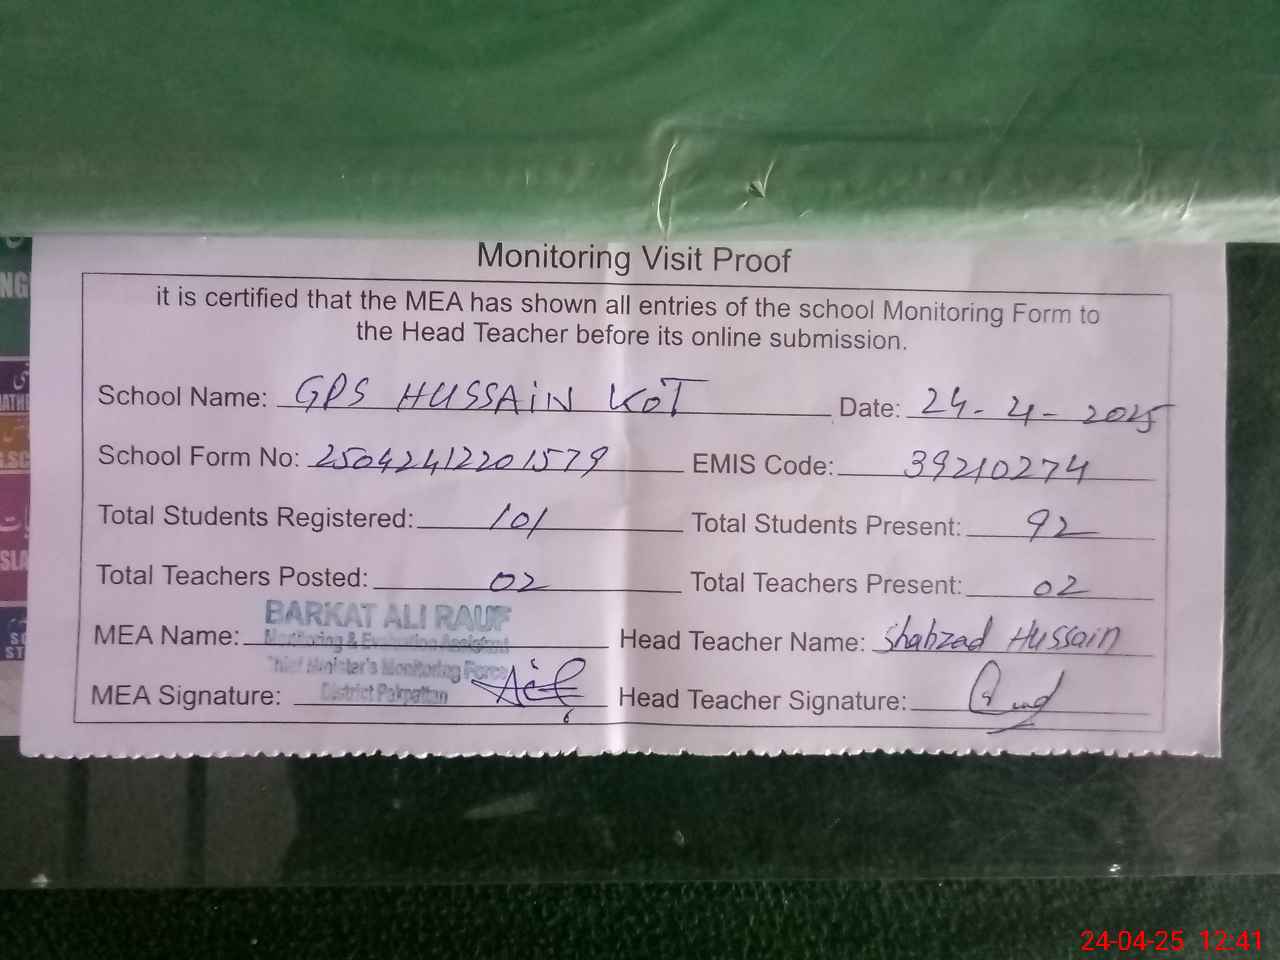 Monitoring Visit Proof
it is certified that the MEA has shown all entries of the school Monitoring Form to
the Head Teacher before its online submission.
School Name: GPS HUSSAIN KOT Date: 24-4-2025
School Form No: 25042412201579 EMIS Code: 39210274
Total Students Registered: 101 Total Students Present: 92
Total Teachers Posted: 02 Total Teachers Present: 02
BARKAT ALI RAUF
MEA Name: Head Teacher Name: Shahzad Hussain
Monitoring & Evaluation Assistant
Chief Minister's Monitoring Force
District Pakpattan
MEA Signature: Head Teacher Signature:
24-04-25 12:41